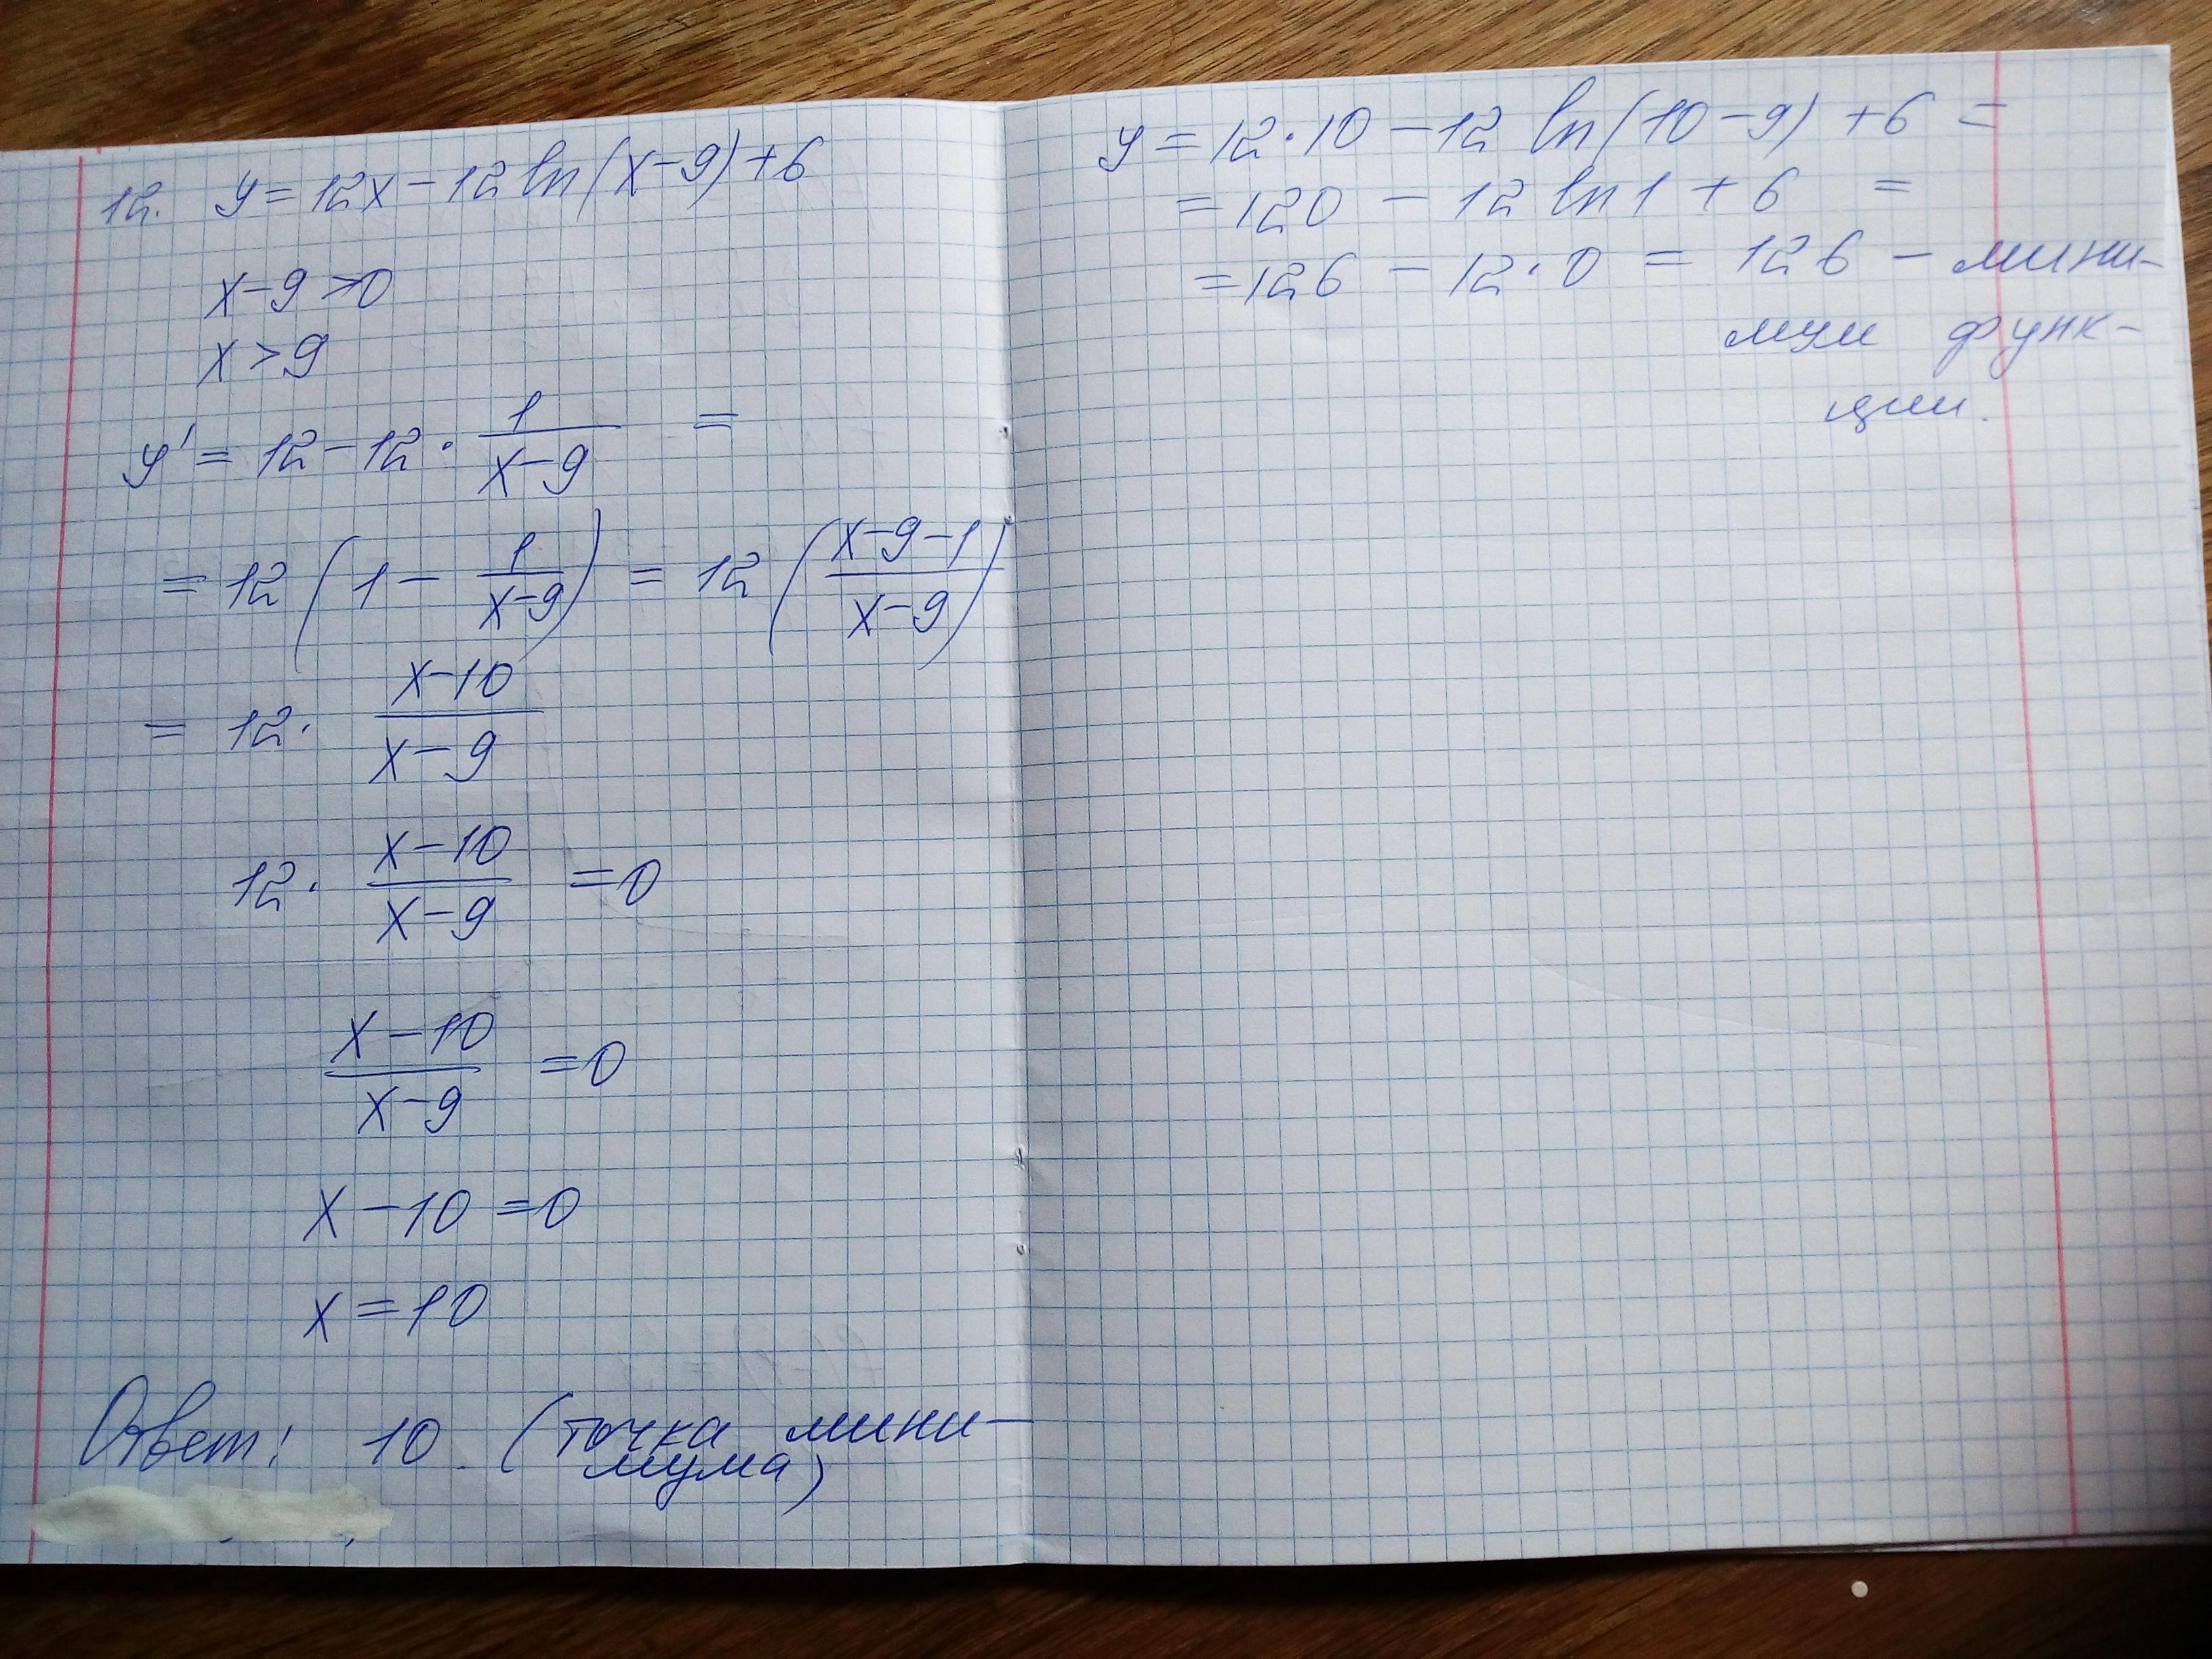 12. y = 12x - 12 ln(x-9) + 6
x-9 > 0
x > 9
y' = 12 - 12 · 1/(x-9) =
= 12 (1 - 1/(x-9)) = 12 ((x-9-1)/(x-9))
= 12 · (x-10)/(x-9)
12 · (x-10)/(x-9) = 0
(x-10)/(x-9) = 0
x - 10 = 0
x = 10
Ответ: 10. (точка мини-
мума)
y = 12·10 - 12 ln(10-9) + 6 =
= 120 - 12 ln 1 + 6 =
= 126 - 12·0 = 126 - мини-
мум функ-
ции.